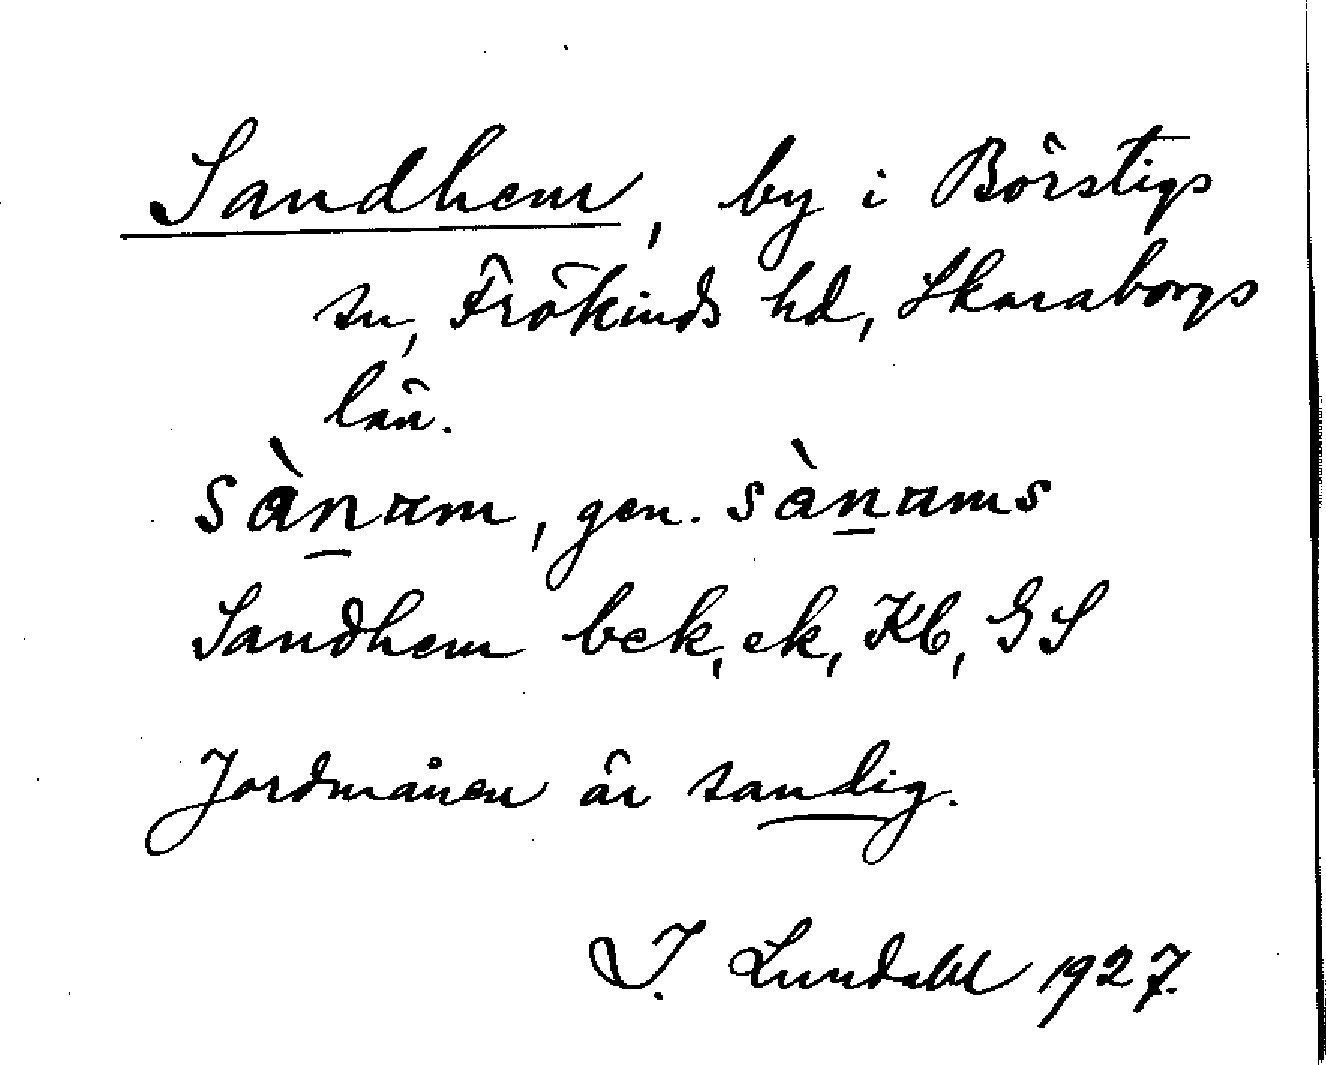 Sandhem, by i Börstigs
sn, Frökinds hd, Skaraborgs
län.
sànam, gen. sànams
Sandhem bek, ek, Kb, GS
Jordmånen är sandig.
I. Lundahl 1927.